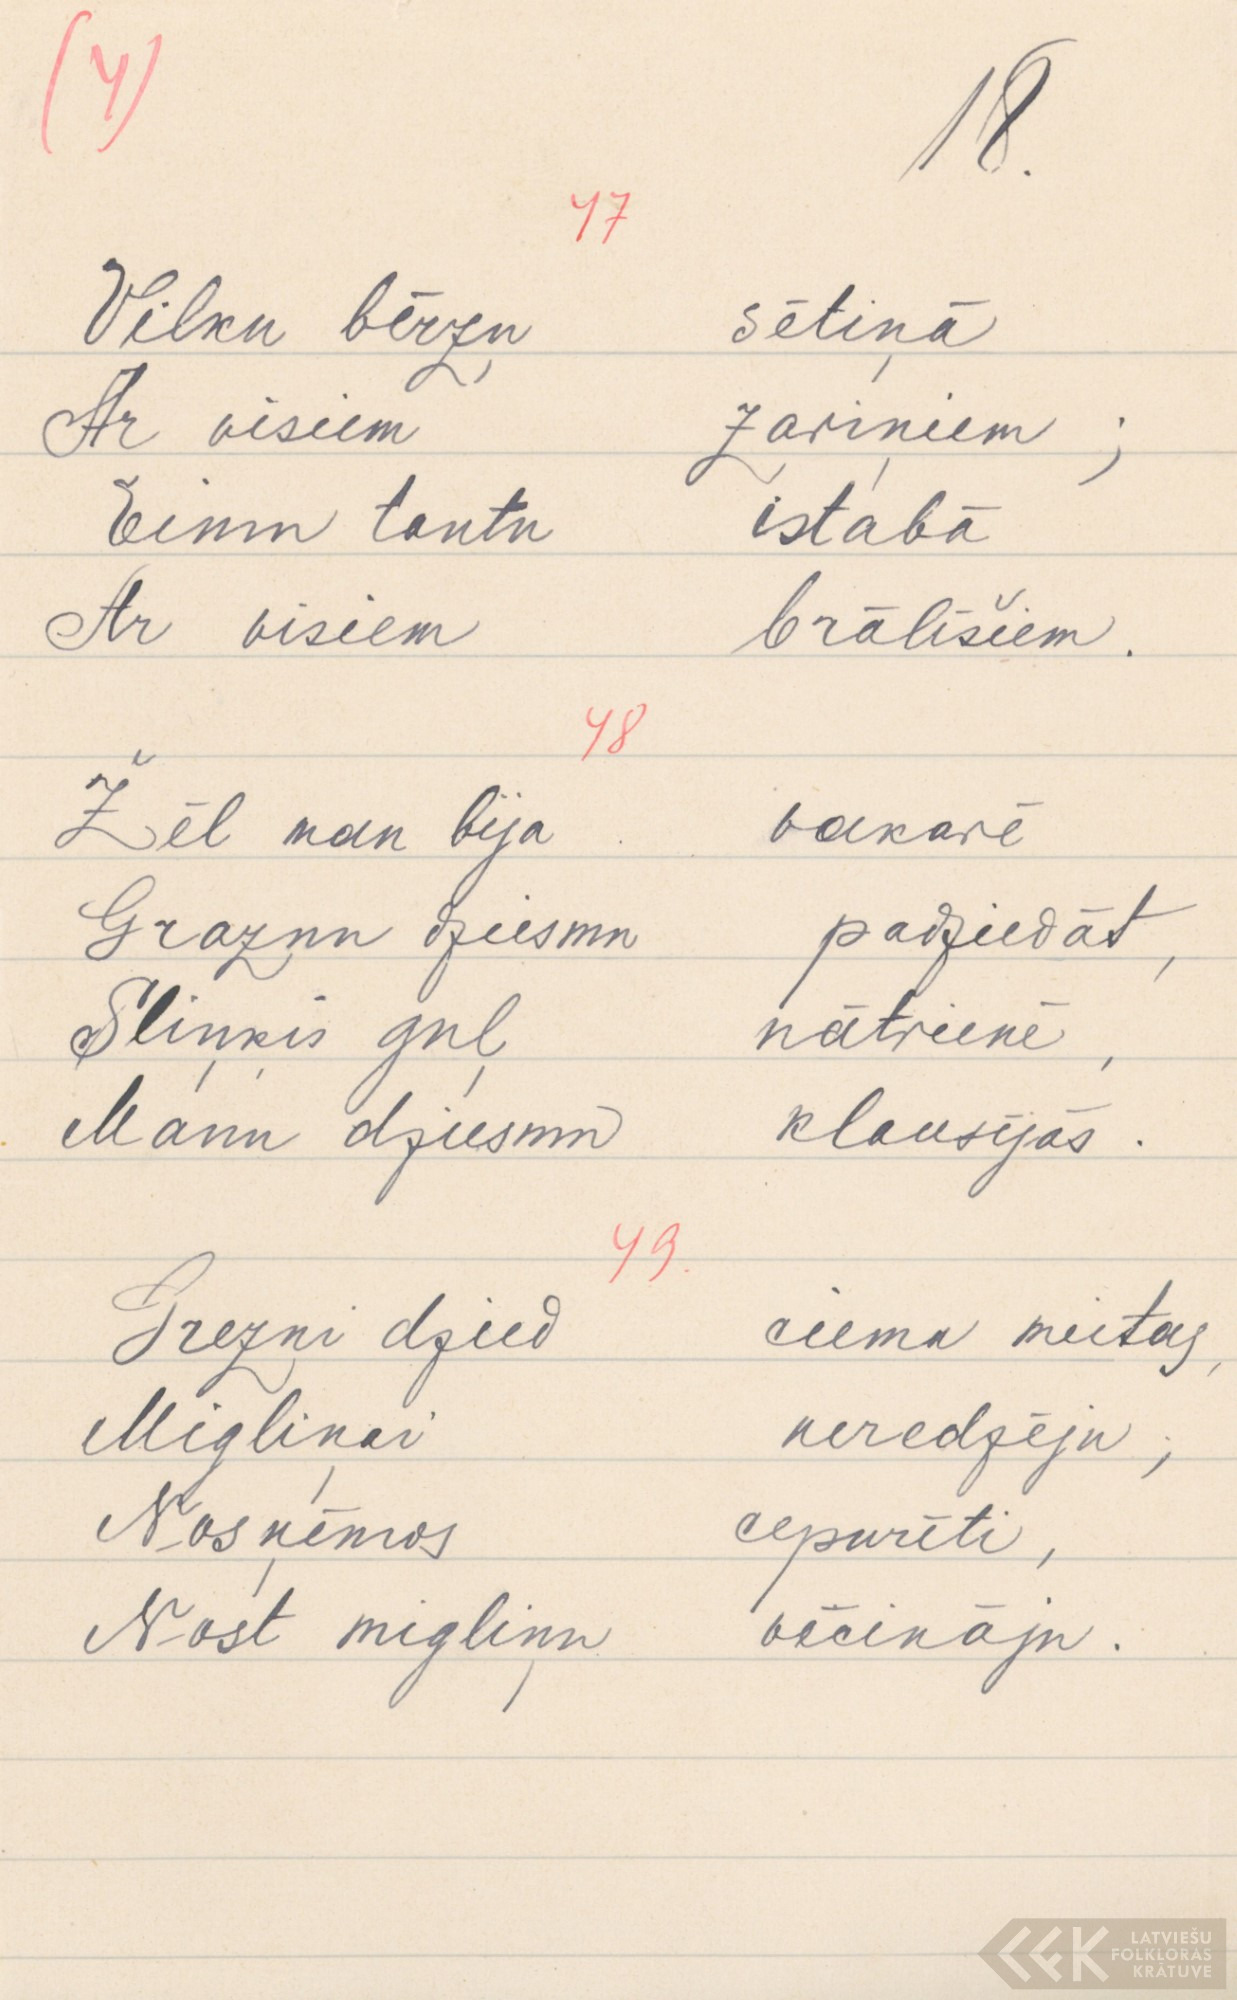 (4)
18.
47
Vilku bērzu sētiņā
Ar visiem zariņiem ;
Eimu tautu istabā
Ar visiem brālīšiem.
48
Žēl man bija vakarē
Graznu dziesmu padziedāt,
Sliņķis guļ nātrienē,
Manu dziesmu klausījās.
49.
Grezni dzied ciema meitas,
Migliņai neredzēju ;
Nosņēmos cepurīti,
Nost migliņu vēcināju.
LATVIEŠU
FOLKLORAS
KRĀTUVE